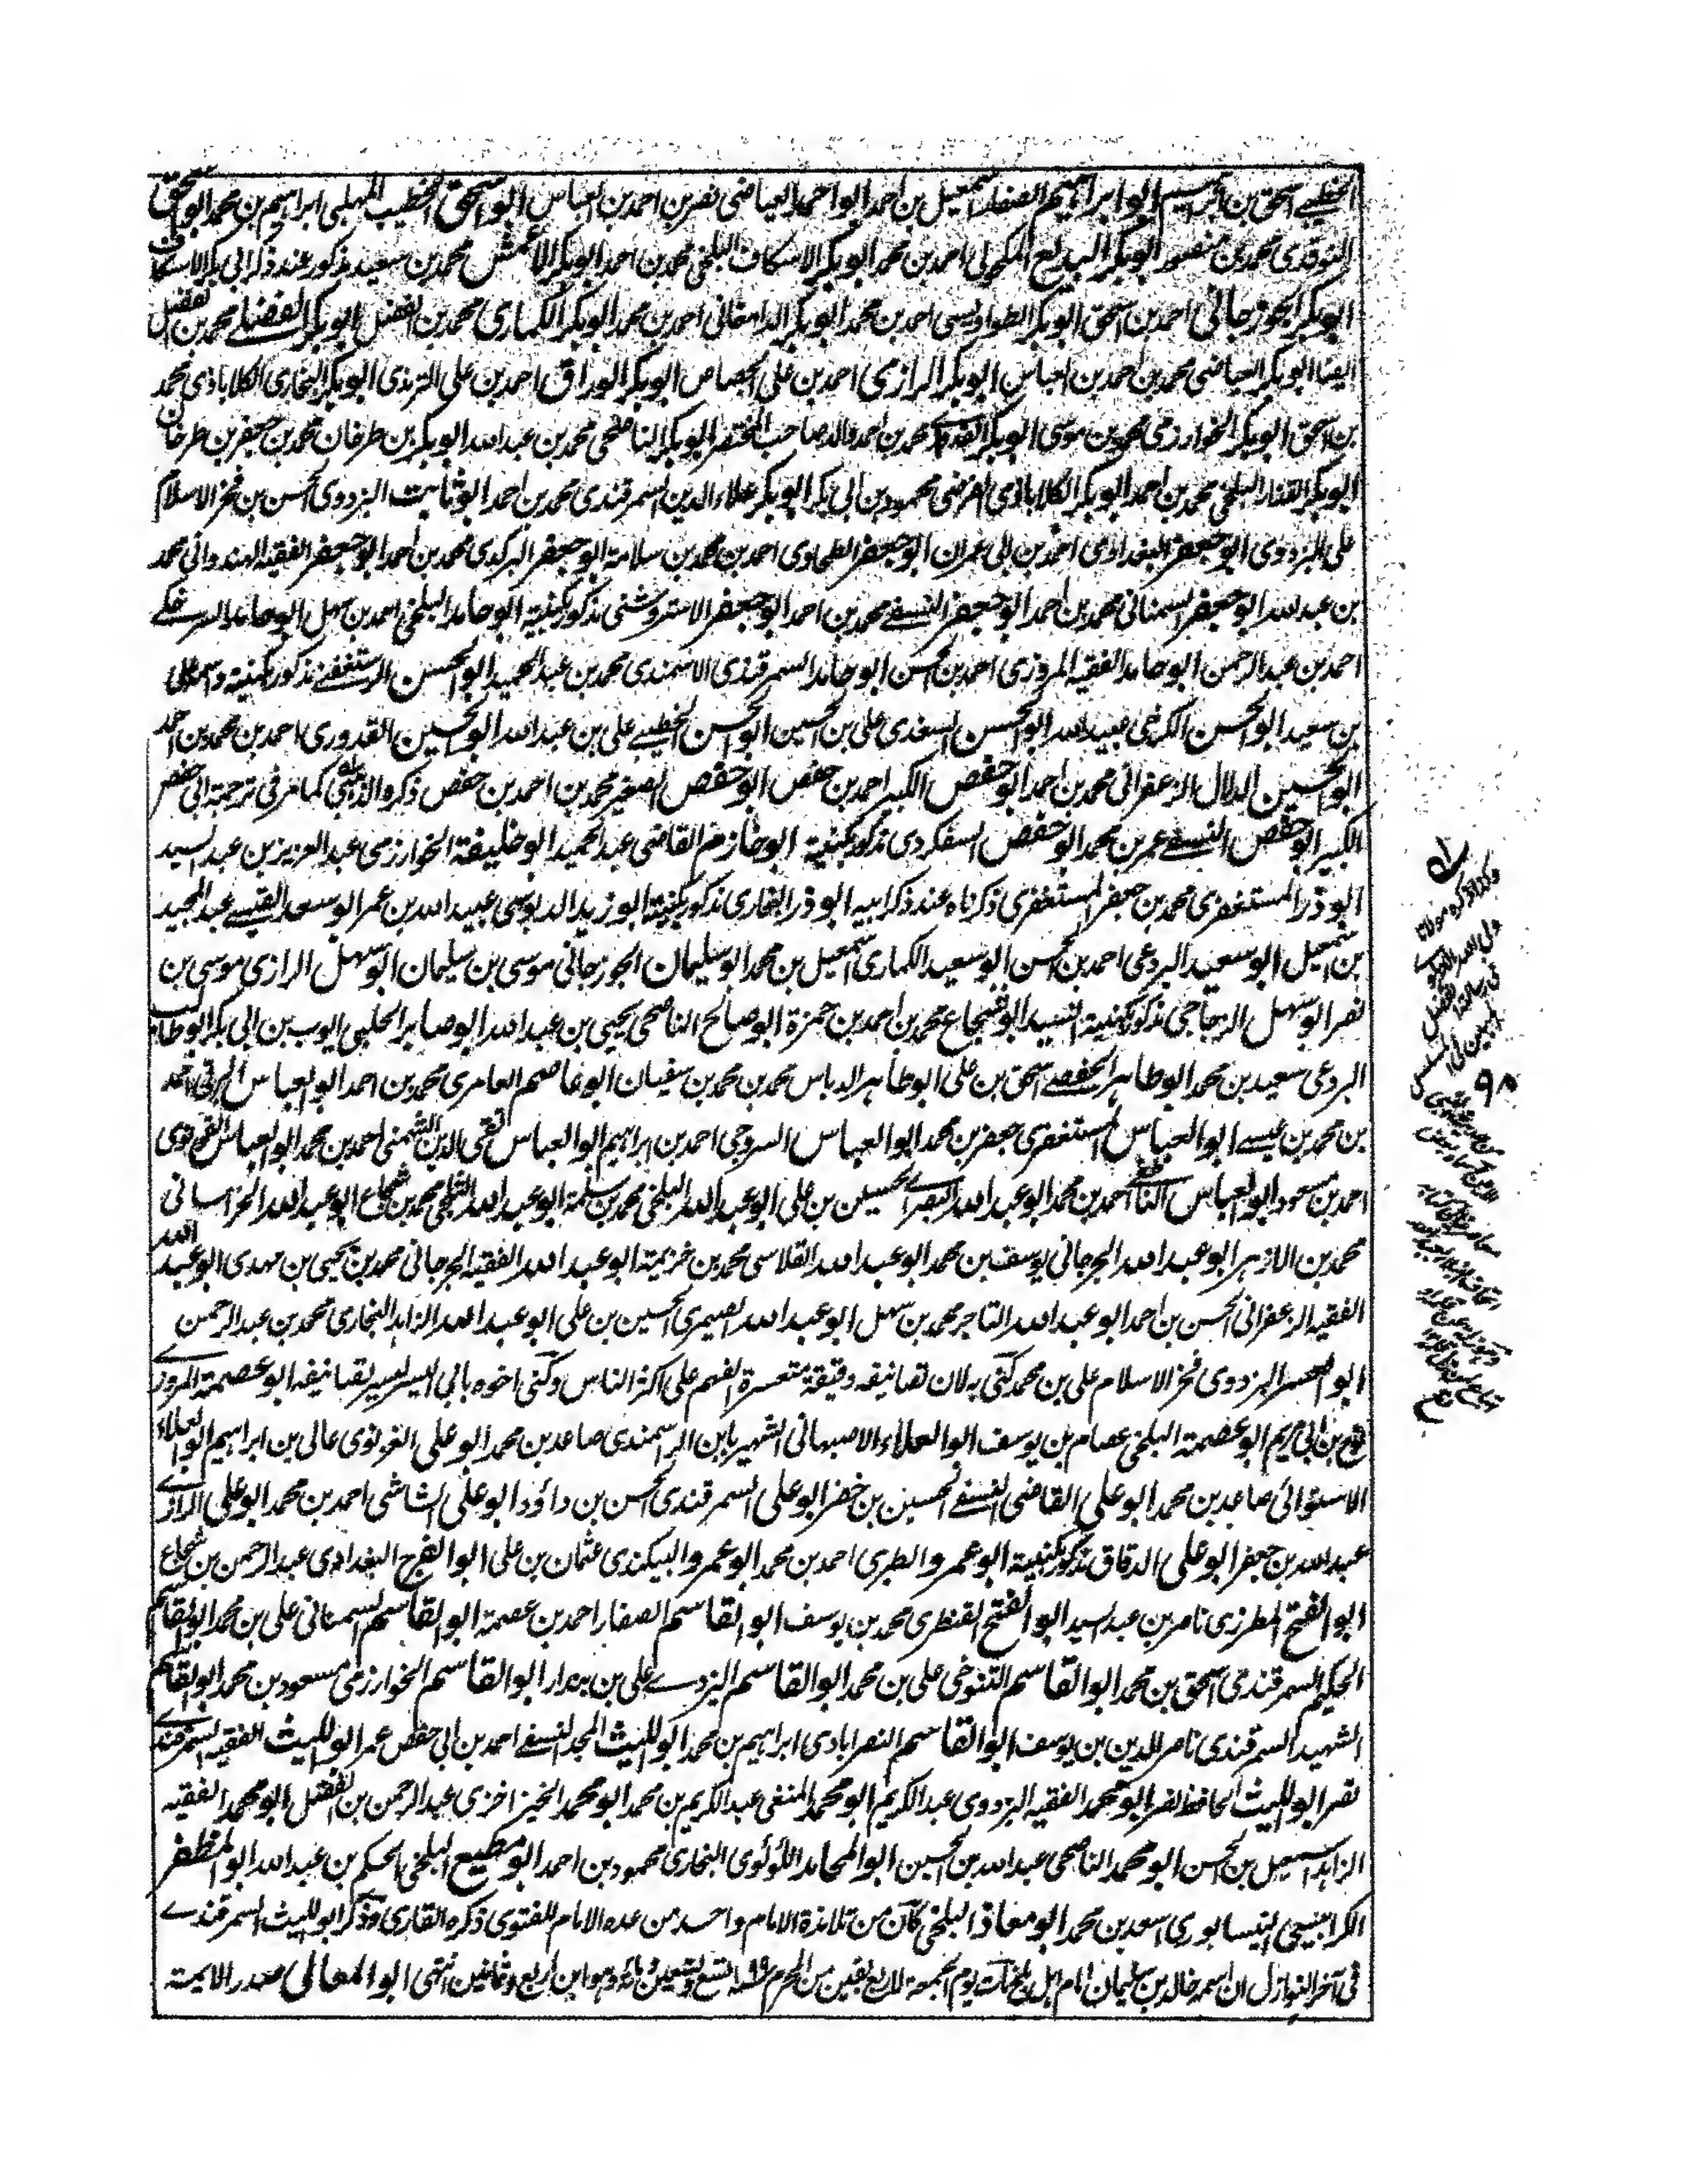 الخطيبي اسحق بن ابراهيم ابو ابراهيم الصفار اسمعيل بن احمد ابو احمد العياضي نصر بن احمد بن العباس ابو اسحق الخطيب المهلبي ابراهيم بن محمد ابو اسحق
النوقدي محمد بن منصور ابو بكر البديع المكحولي احمد بن محمد ابو بكر الاسكاف البلخي محمد بن احمد ابو بكر الاعمش محمد بن سعيد مذكور عند ذكر ابي بكر الاسكاف
ابو بكر الجوزجاني احمد بن اسحق ابو بكر الطواويسي احمد بن محمد ابو بكر الدامغاني احمد بن محمد ابو بكر الكماري محمد بن الفضل ابو بكر الفضلي محمد بن الفضل
ايضا ابو بكر العياضي محمد بن احمد بن العباس ابو بكر الرازي احمد بن علي الجصاص ابو بكر الوراق احمد بن علي الترمذي ابو بكر البخاري الكلاباذي محمد
بن اسحق ابو بكر الخوارزمي محمد بن موسى ابو بكر القدوري محمد بن احمد والد صاحب المختصر ابو بكر الناصحي محمد بن عبد الله ابو بكر بن طرخان محمد بن جعفر بن طرخان
ابو بكر القفار البلخي محمد بن احمد ابو بكر الكلاباذي الفرضي محمود بن ابي بكر ابو بكر علاء الدين السمرقندي محمد بن احمد ابو ثابت البزدوي الحسن بن فخر الاسلام
علي البزدوي ابو جعفر البغدادي احمد بن ابي عمران ابو جعفر الطحاوي احمد بن محمد بن سلامة ابو جعفر البركدي محمد بن احمد ابو جعفر الفقيه الهندواني محمد
بن عبد الله ابو جعفر السمناني محمد بن احمد ابو جعفر النسفي محمد بن احمد ابو جعفر الاستروشني مذكور بكنيته ابو حامد البلخي احمد بن سهل ابو حامد السرخكي
احمد بن عبد الرحمن ابو حامد الفقيه المروزي احمد بن الحسن ابو حامد السمرقندي الاسمندي محمد بن عبد الحميد ابو الحسن الرستغفني مذكور بكنيته واسمه علي
بن سعيد ابو الحسن الكرخي عبيد الله ابو الحسن السغدي علي بن الحسين ابو الحسن الخطيبي علي بن عبد الله ابو الحسين القدوري احمد بن محمد بن احمد
ابو الحسين الدلال الزعفراني محمد بن احمد ابو حفص الكبير احمد بن حفص ابو حفص الصغير محمد بن احمد بن حفص ذكره الذهبي كما مر في ترجمة ابي حفص
الكبير ابو حفص النسفي عمر بن محمد ابو حفص السفكردي مذكور بكنيته ابو خازم القاضي عبد الحميد ابو خليفة الخوارزمي عبد العزيز بن عبد السيد
ابو ذر المستغفري محمد بن جعفر المستغفري ذكرناه عند ذكر ابيه ابو ذر القاري مذكور بكنيته ابو زيد الدبوسي عبيد الله بن عمر ابو سعد القيسي عبد المجيد
بن اسمعيل ابو سعيد البردعي احمد بن الحسن ابو سعيد الكماري اسمعيل بن محمد ابو سليمان الجوزجاني موسى بن سليمان ابو سهل الرازي موسى بن
نصر ابو سهل الزجاجي مذكور بكنيته السيد ابو شجاع محمد بن احمد بن حمزة ابو صالح الناصحي يحيى بن عبد الله ابو صابر الحلبي ايوب بن ابي بكر ابو طالب
البردعي سعيد بن محمد ابو طاهر الحفصي اسحق بن علي ابو طاهر الدباس محمد بن محمد بن سفيان ابو عاصم العامري محمد بن احمد ابو العباس البرتي احمد
بن محمد بن عيسى ابو العباس المستغفري جعفر بن محمد ابو العباس السروجي احمد بن ابراهيم ابو العباس تقي الدين الشمني احمد بن محمد ابو العباس القونوي
احمد بن مسعود ابو العباس الناطفي احمد بن محمد ابو عبد الله البصري حسين بن علي ابو عبد الله البلخي محمد بن سلمة ابو عبد الله الثلجي محمد بن شجاع ابو عبد الله الخراساني
محمد بن الازهر ابو عبد الله الجرجاني يوسف بن محمد ابو عبد الله القلاسي محمد بن خزيمة ابو عبد الله الفقيه الجرجاني محمد بن يحيى بن مهدي ابو عبد الله
الفقيه الزعفراني الحسن بن احمد ابو عبد الله التاجر محمد بن سهل ابو عبد الله الصيمري الحسين بن علي ابو عبد الله الزاهد البخاري محمد بن عبد الرحمن
ابو العسر البزدوي فخر الاسلام علي بن محمد كني به لان تصانيفه دقيقة متعسرة الفهم على اكثر الناس وكني اخوه بابي اليسر ليسر تصانيفه ابو عصمة المروزي
نوح بن ابي مريم ابو عصمة البلخي عصام بن يوسف ابو العلاء الاصبهاني الشهير بابن الراسمندي صاعد بن محمد ابو علي الغزنوي عالي بن ابراهيم ابو العلاء
الاستوائي صاعد بن محمد ابو علي القاضي النسفي الحسين بن خضر ابو علي السمرقندي الحسن بن داؤد ابو علي الشاشي احمد بن محمد ابو علي الرازي
عبد الله بن جعفر ابو علي الدقاق مذكور بكنيته ابو عمرو الطبري احمد بن محمد ابو عمرو البيكندي عثمان بن علي ابو الفرج البغدادي عبد الرحمن بن شجاع
ابو الفتح المطرزي ناصر بن عبد السيد ابو الفتح القنطري محمد بن يوسف ابو القاسم الصفار احمد بن عصمة ابو القاسم السمناني علي بن محمد ابو القاسم
الحكيم السمرقندي اسحق بن محمد ابو القاسم التنوخي علي بن محمد ابو القاسم اليزدي علي بن بندار ابو القاسم الخوارزمي مسعود بن محمد ابو القاسم
الشهيد السمرقندي ناصر الدين بن يوسف ابو القاسم النصرابادي ابراهيم بن محمد ابو الليث المجد النسفي احمد بن ابي حفص عمر ابو الليث الفقيه السمرقندي
نصر ابو الليث الحافظ نصر ابو محمد الفقيه البزدوي عبد الكريم ابو محمد المنفي عبد الكريم بن محمد ابو محمد الخيزاخزي عبد الرحمن بن الفضل ابو محمد الفقيه
الزاهد اسمعيل بن الحسن ابو محمد الناصحي عبد الله بن الحسين ابو المحامد اللؤلوي البخاري محمود بن احمد ابو مطيع البلخي الحكم بن عبد الله ابو المظفر
الكرابيسي النيسابوري اسعد بن محمد ابو معاذ البلخي كان من تلامذة الامام واحد من عده الامام للفتوى ذكره القاري وذكر ابو الليث السمرقندي
في آخر النوازل ان اسمه خالد بن سليمان امام اهل بلخ مات يوم الجمعة لاربع بقين من المحرم سنة ١٩٩ تسع وتسعين ومائة وهو ابن اربع وثمانين انتهى ابو المعالي صدر الايمة
هكذا ذكره مولانا
ولي الله